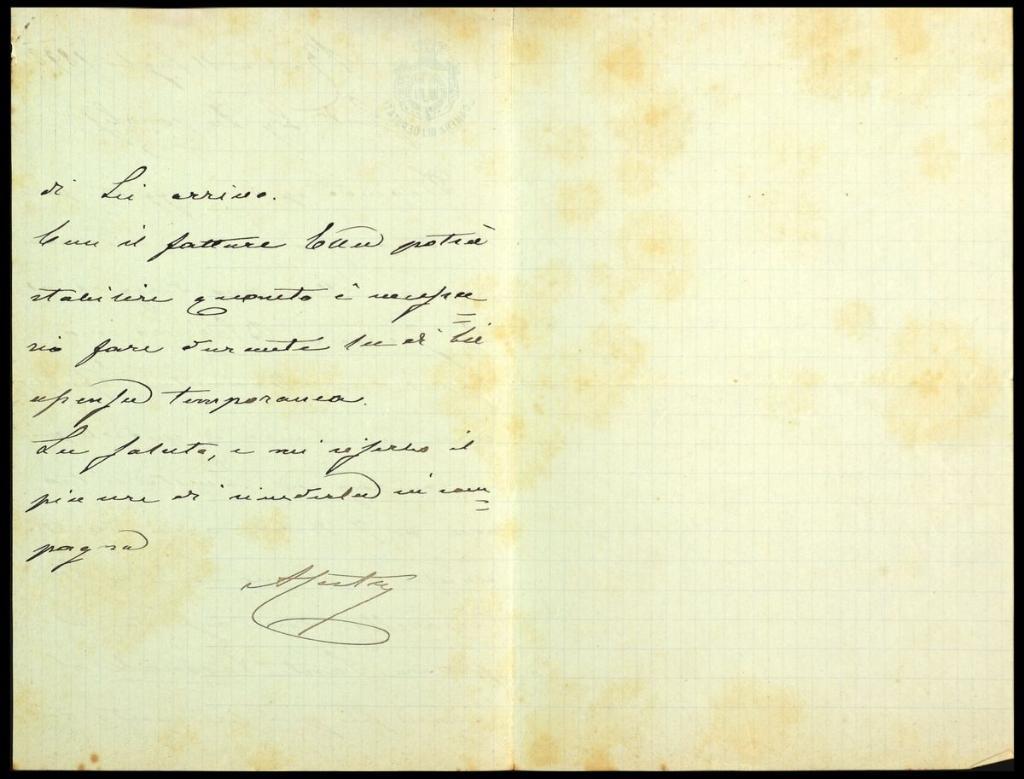 di Lei arrivo.
Con il fattore Ella potrà
stabilire quanto è necessa=
rio fare durante la di Lei
assenza temporanea.
La saluto, e mi riserbo il
piacere di rivederla in cam=
pagna